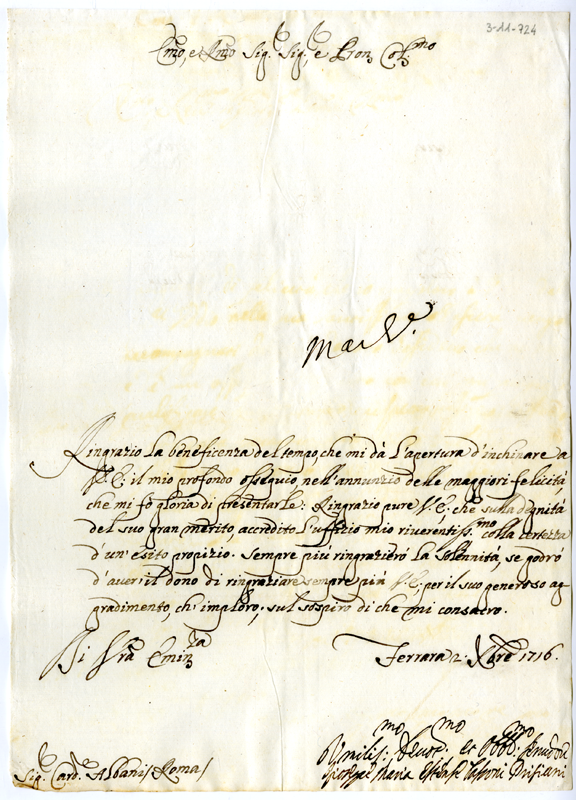 3-11-724
Em̃o, e Rm̃o Sig.r Sig.r, e Pron Col.mo
Ringrazio la beneficenza del tempo, che mi dà l'apertura d'inchinare a
V. E. il mio profondo ossequio, nell'annunzio delle maggiori felicità,
che mi fò gloria di presentarle: Ringrazio pure V. E. che sulla degnità
del suo gran merito, accredito l'uffizio mio riverentiss.mo colla certezza
d'un'esito propizio. Sempre più ringrazierò la solennità, se godrò
d'aver il dono di ringraziare sempre più V. E., per il suo generoso ag-
gradimento, ch'imploro; sul sospiro di che mi consacro.
Di Vr̃a Emin.za Ferrara 2. Xbre 1716.
Umilis.mo Devot.mo et Obb.mo
Sig.r Card. Albani / Roma / Maria